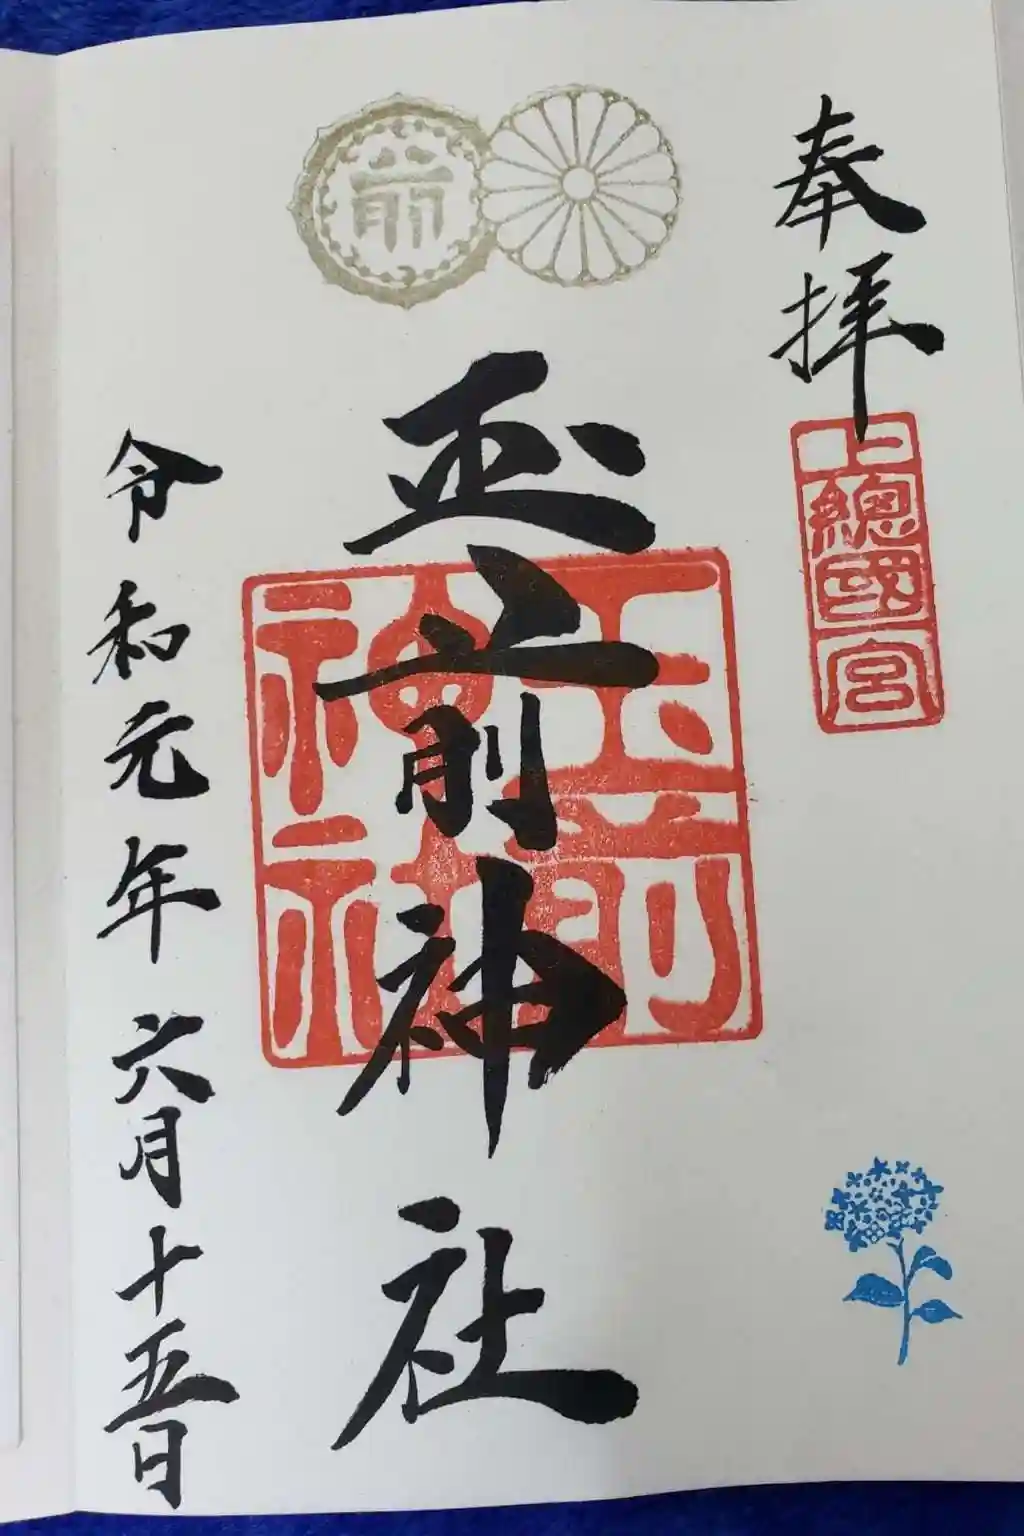 奉拝
上總國
一宮
玉前神社
玉前神社
前
令和元年六月十五日